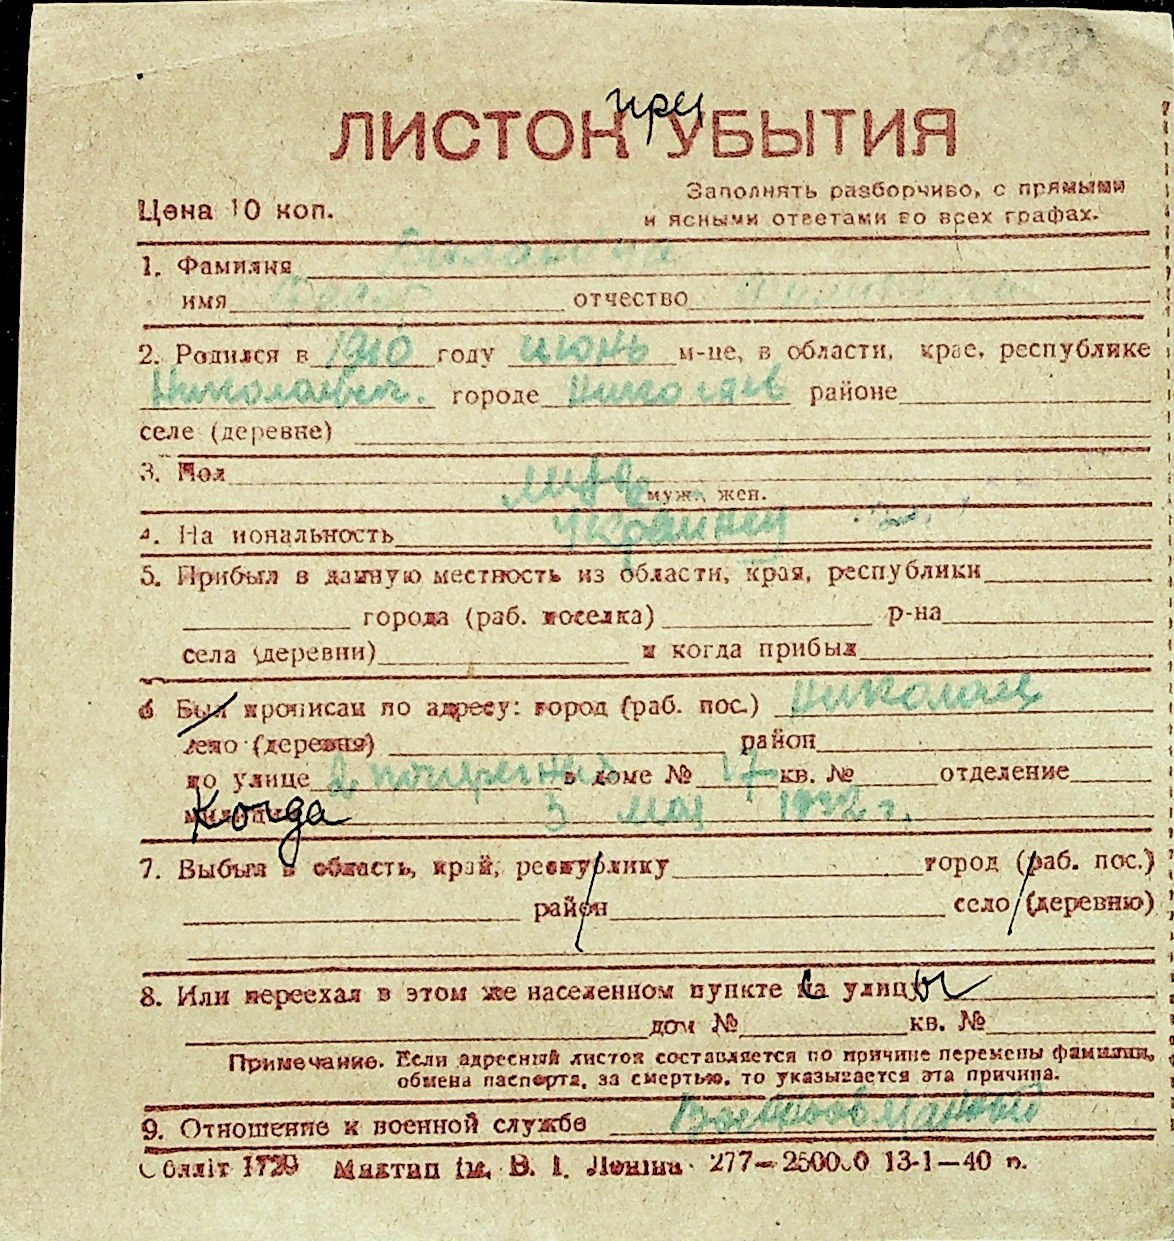 1878
при
ЛИСТОК УБЫТИЯ
Цена 10 коп.
Заполнять разборчиво, с прямыми
и ясными ответами во всех графах.
1. Фамилия
имя отчество
2. Родился в 1910 году июнь м-це, в области, крае, республике
Николаевск. городе Николаев районе
селе (деревне)
3. Пол муж
муж., жен.
4. На иональность Украинец
5. Прибыл в данную местность из области, края, республики
города (раб. поселка) р-на
села (деревни) и когда прибыл
6 Был прописан по адресу: город (раб. пос.) Николаев
село (деревня) район
по улице 2 поперечной в доме № 17 кв. № отделение
милиции Когда 3 мая г.
7. Выбыл в область, край, республику город (раб. пос.)
район село (деревню)
8. Или переехал в этом же населенном пункте с улицы
дом № кв. №
Примечание. Если адресный листок составляется по причине перемены фамилии,
обмена паспорта, за смертью, то указывается эта причина.
9. Отношение к военной службе Военнообязанный
Обллiт 1729 Миктип iм. В. I. Ленiна 277—250000 13-1—40 п.